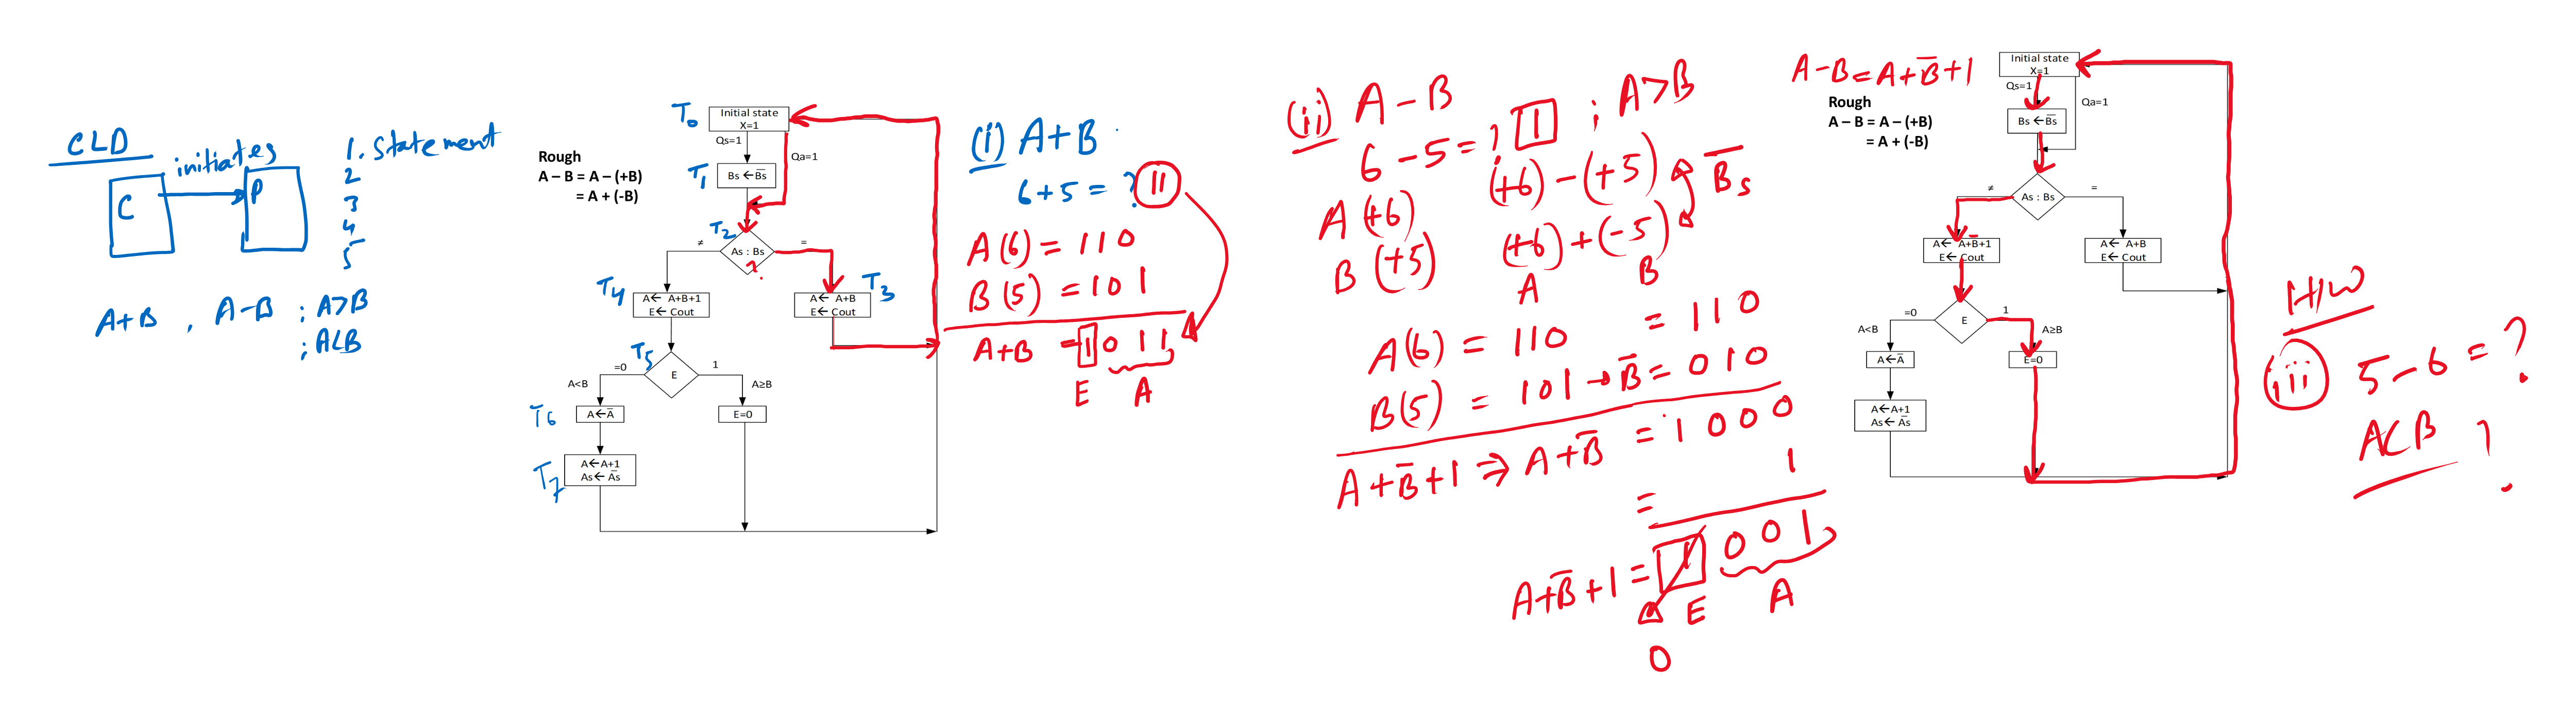 CLD
initiates
C
P
1. Statement
2
3
4
5
A+B , A-B ; A>B
; A<B
Rough
A – B = A – (+B)
= A + (-B)
T0
Initial state
X=1
Qs=1
Qa=1
T1
Bs ←B̅s̅
T2
≠
As : Bs
=
?
T4
A← A+B+1
E← Cout
A← A+B
E← Cout
T3
T5
=0
E
1
A<B
A≥B
T6
A←A̅
E=0
T7
A←A+1
As← A̅s
(i) A+B
6+5 = ? 11
A(6) = 110
B(5) = 101
A+B = 1 011
E A
(ii) A-B
6-5 = ? 1 ; A>B
(+6) - (+5) B̅s
A (+6)
B (+5)
(+6) + (-5)
A B
A(6) = 110 = 110
B(5) = 101 → B̅ = 010
A+B̅+1 ⇒ A+B̅ = 1000
= 1
A+B̅+1 = 1 001
E A
0
A-B = A+B̅+1
Rough
A – B = A – (+B)
= A + (-B)
Initial state
X=1
Qs=1
Qa=1
Bs ←B̅s̅
≠
As : Bs
=
A← A+B̅+1
E← Cout
A← A+B
E← Cout
=0
E
1
A<B
A≥B
A←A̅
E=0
A←A+1
As← A̅s
H/W
(iii) 5-6 = ?
A<B ?